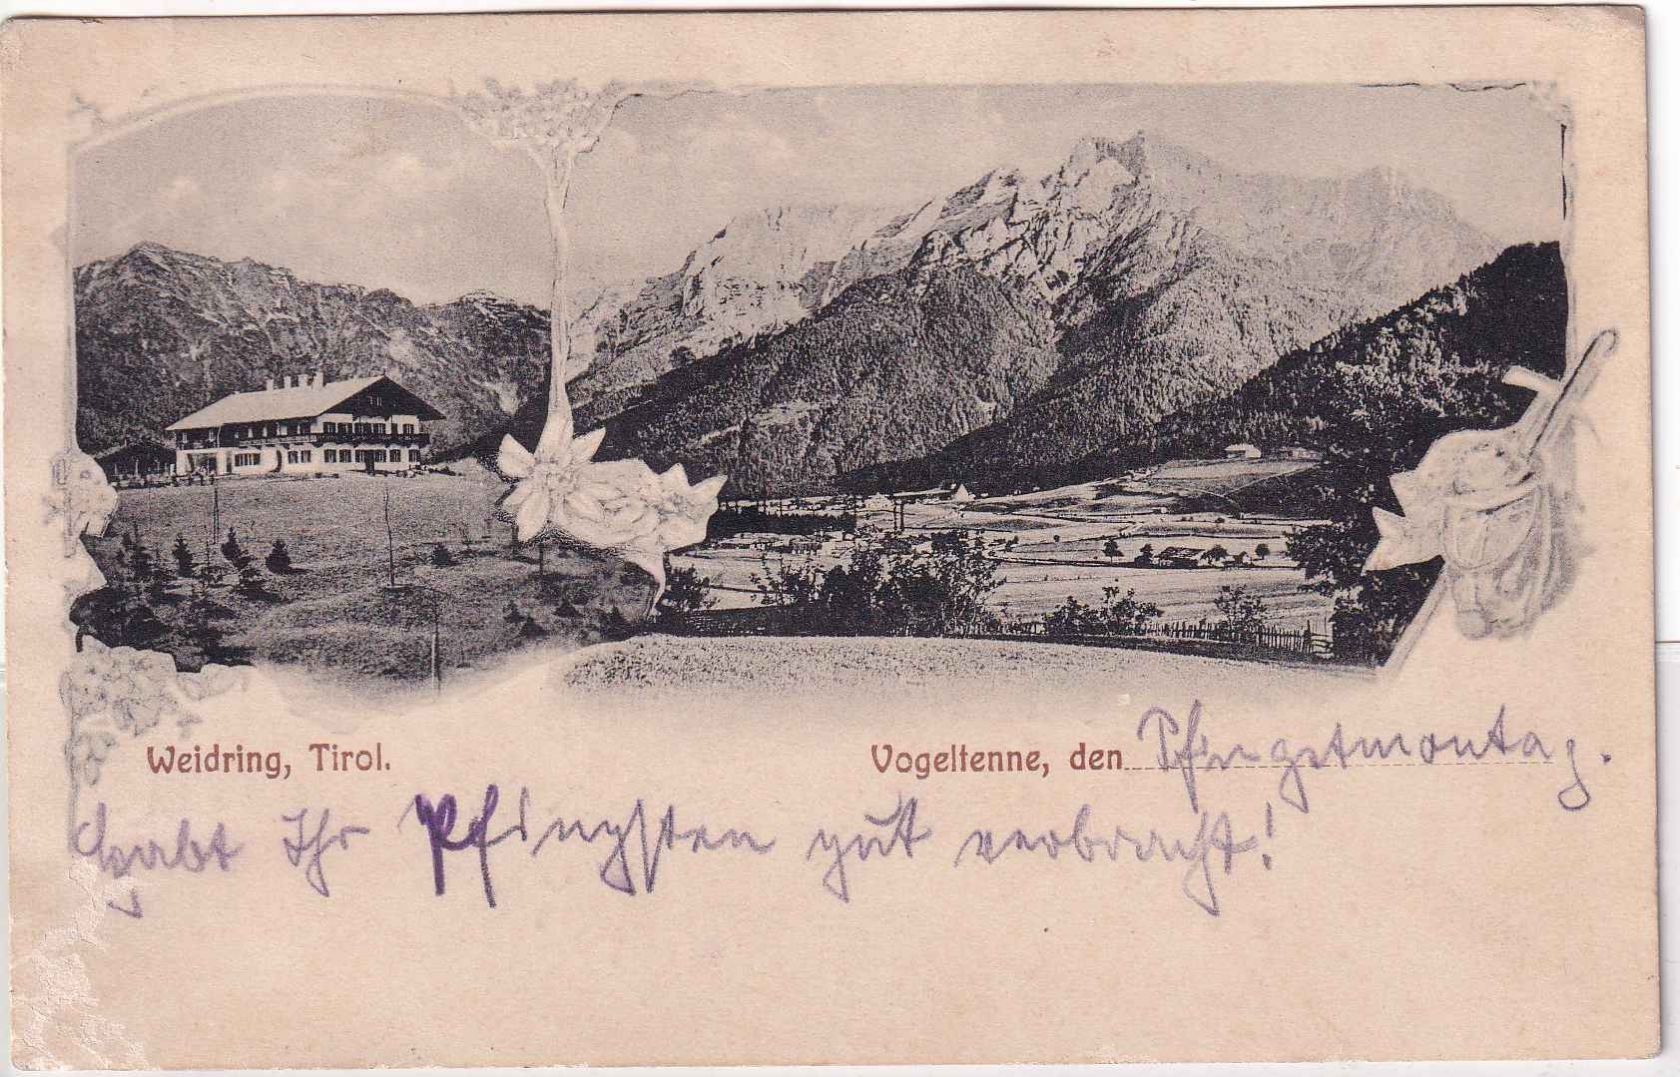 Weidring, Tirol.
Vogeltenne, den Pfingstmontag.
Habt Ihr Pfingsten gut verbracht!